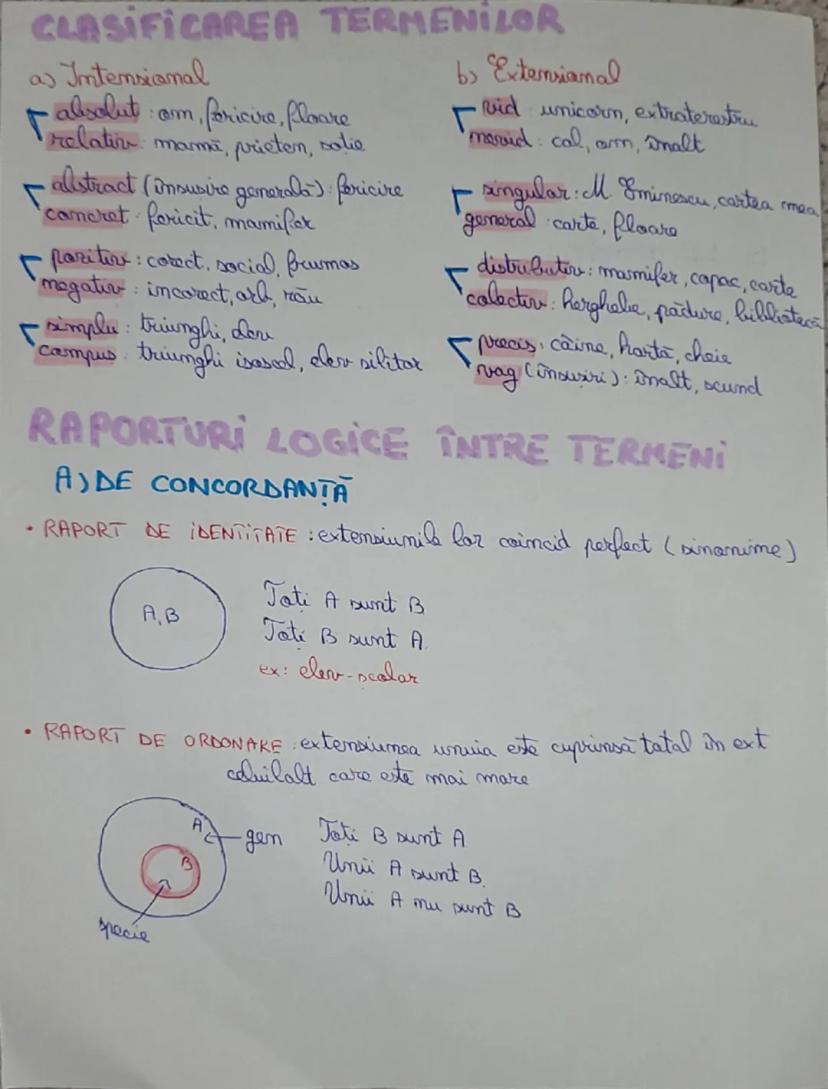 CLASIFICAREA TERMENILOR
a) Intensional
absolut : om, fericire, floare
relativ : mamă, prieten, soție
abstract (însușire generală) : fericire
concret : fericit, mamifer
pozitiv : corect, social, frumos
negativ : incorect, orb, rău
simplu : triunghi, elev
compus : triunghi isoscel, elev silitor
b) Extensional
vid : unicorn, extraterestru
nevid : cal, om, înalt
singular : M Eminescu, cartea mea
general : carte, floare
distributiv : mamifer, copac, carte
colectiv : herghelie, pădure, bibliotecă
precis : câine, hartă, cheie
vag (însușiri) : înalt, scund
RAPORTURI LOGICE ÎNTRE TERMENI
A) DE CONCORDANȚĂ
• RAPORT DE IDENTITATE : extensiunile lor coincid perfect (sinonime)
A, B
Toți A sunt B
Toți B sunt A
ex: elev-școlar
• RAPORT DE ORDONARE : extensiunea unuia este cuprinsă total în ext
celuilalt care este mai mare
A
gen
B
specie
Toți B sunt A
Unii A sunt B
Unii A nu sunt B